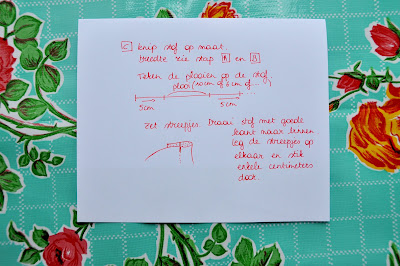 C knip stof op maat.
Breedte zie stap A en B
Teken de plooien op de stof
plooi (10cm of 6cm of ...)
5cm 5cm
Zet streepjes. Draai stof met goede
kant naar binnen
leg de streepjes op
elkaar en stik
enkele centimeters
door.